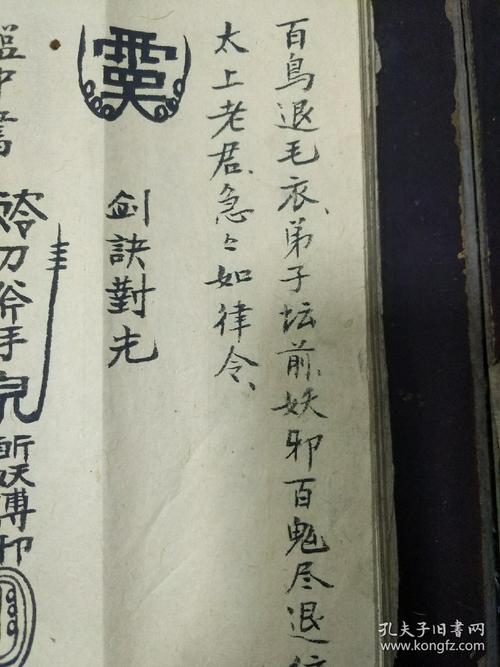 百鳥退毛衣、弟子坛前、妖邪百鬼尽退
太上老君、急〻如律令、
剑訣對光
刀斧手
斩妖縛邪
孔夫子旧书网
www.kongfz.com